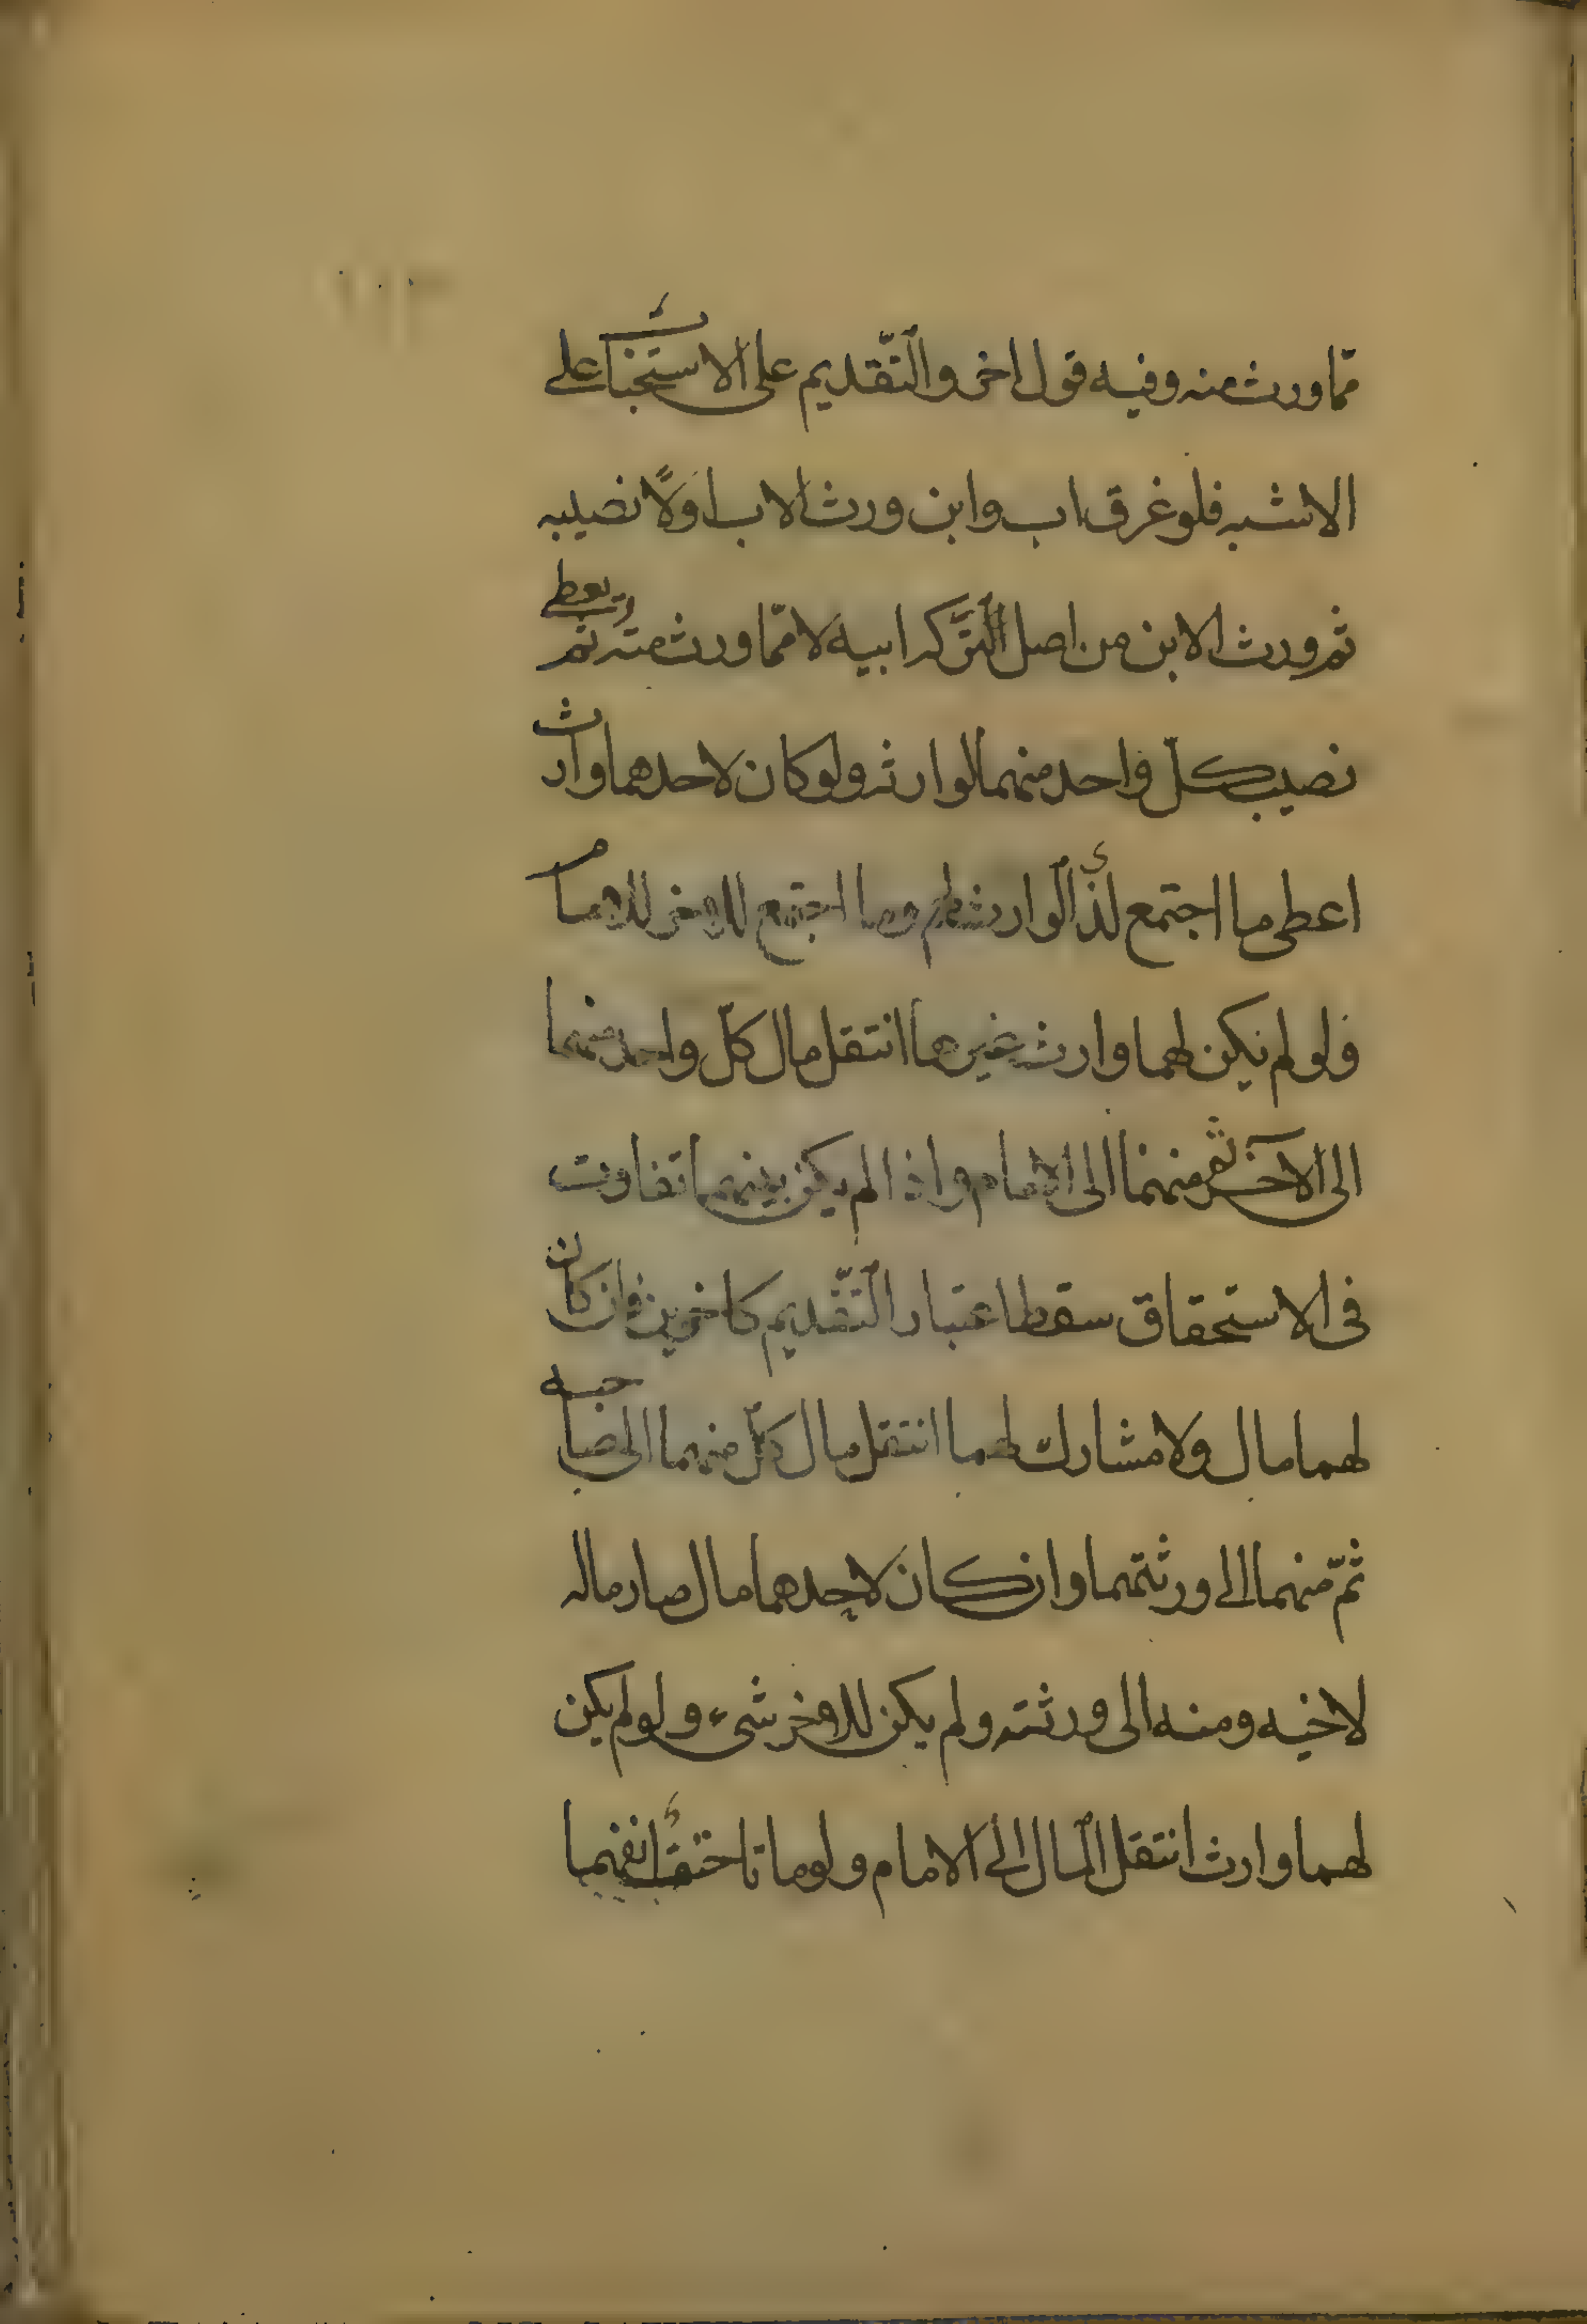 ممّا ورث منه وفيه قول اخر والتّقديم على الاستحباب على
الاشبه فلو غرق اب وابن ورث الاب اولًا نصيبه
ثم ورث الابن من اصل التّركه ابيه لا ممّا ورث منه ثم يعطى
نصيب كلّ واحد منهما لوارثه ولو كان لاحدهما وارث
اعطى ما اجتمع لذى الوارث لهم وما اجتمع للاخر للامام
ولو لم يكن لهما وارث غيرهما انتقل مال كلّ واحد منهما
الى الآخر ثم منهما الى الامام واذا لم يكن بينهما تفاوت
فى الاستحقاق سقط اعتبار التّقديم كاخوين فان كان
لهما مال ولا مشارك لهما انتقل مال كلّ منهما الى صاحبه
ثمّ منهما الى ورثتهما وان كان لاحدهما مال صار ماله
لاخيه ومنه الى ورثته ولم يكن للاخر شىء ولو لم يكن
لهما وارث انتقل المال الى الامام ولو ماتا حتف انفهما